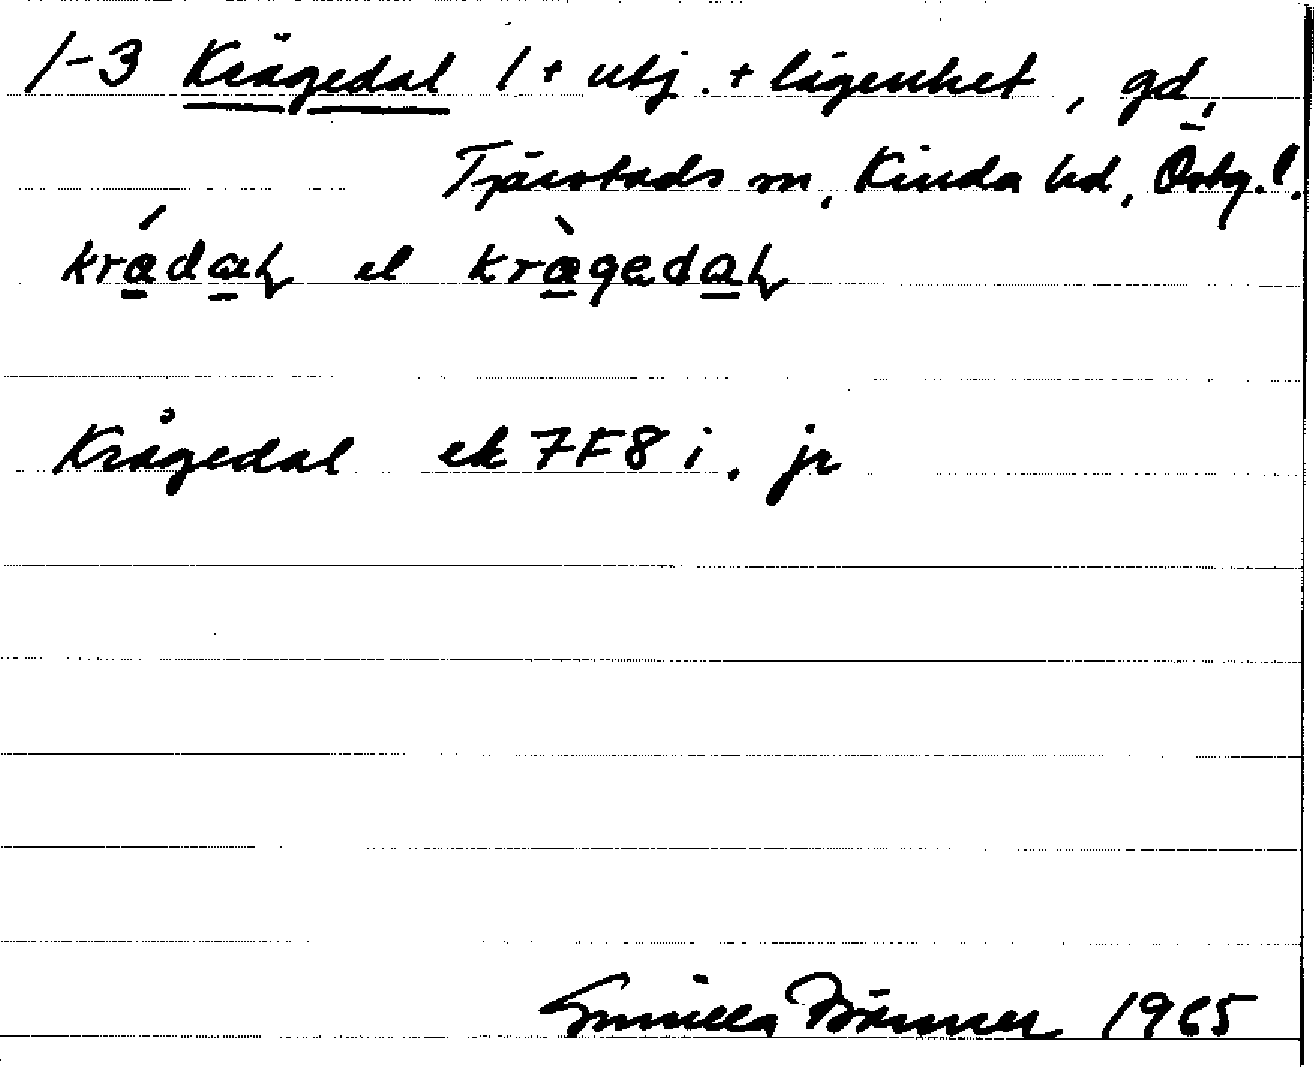 1-3 Krågedal 1 + utj. + lägenhet, gd,
Tjärstads sn, Kinda hd, Östg.l.
krádaɫ el kràgedaɫ
Krågedal ek 7F8 i. jr
Gunilla 1965